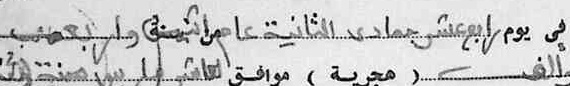 في يوم رابع عشر جمادى الثانية عام اثنين وأربعين
وألف ( هجرية ) موافق لعاشر مارس سنة